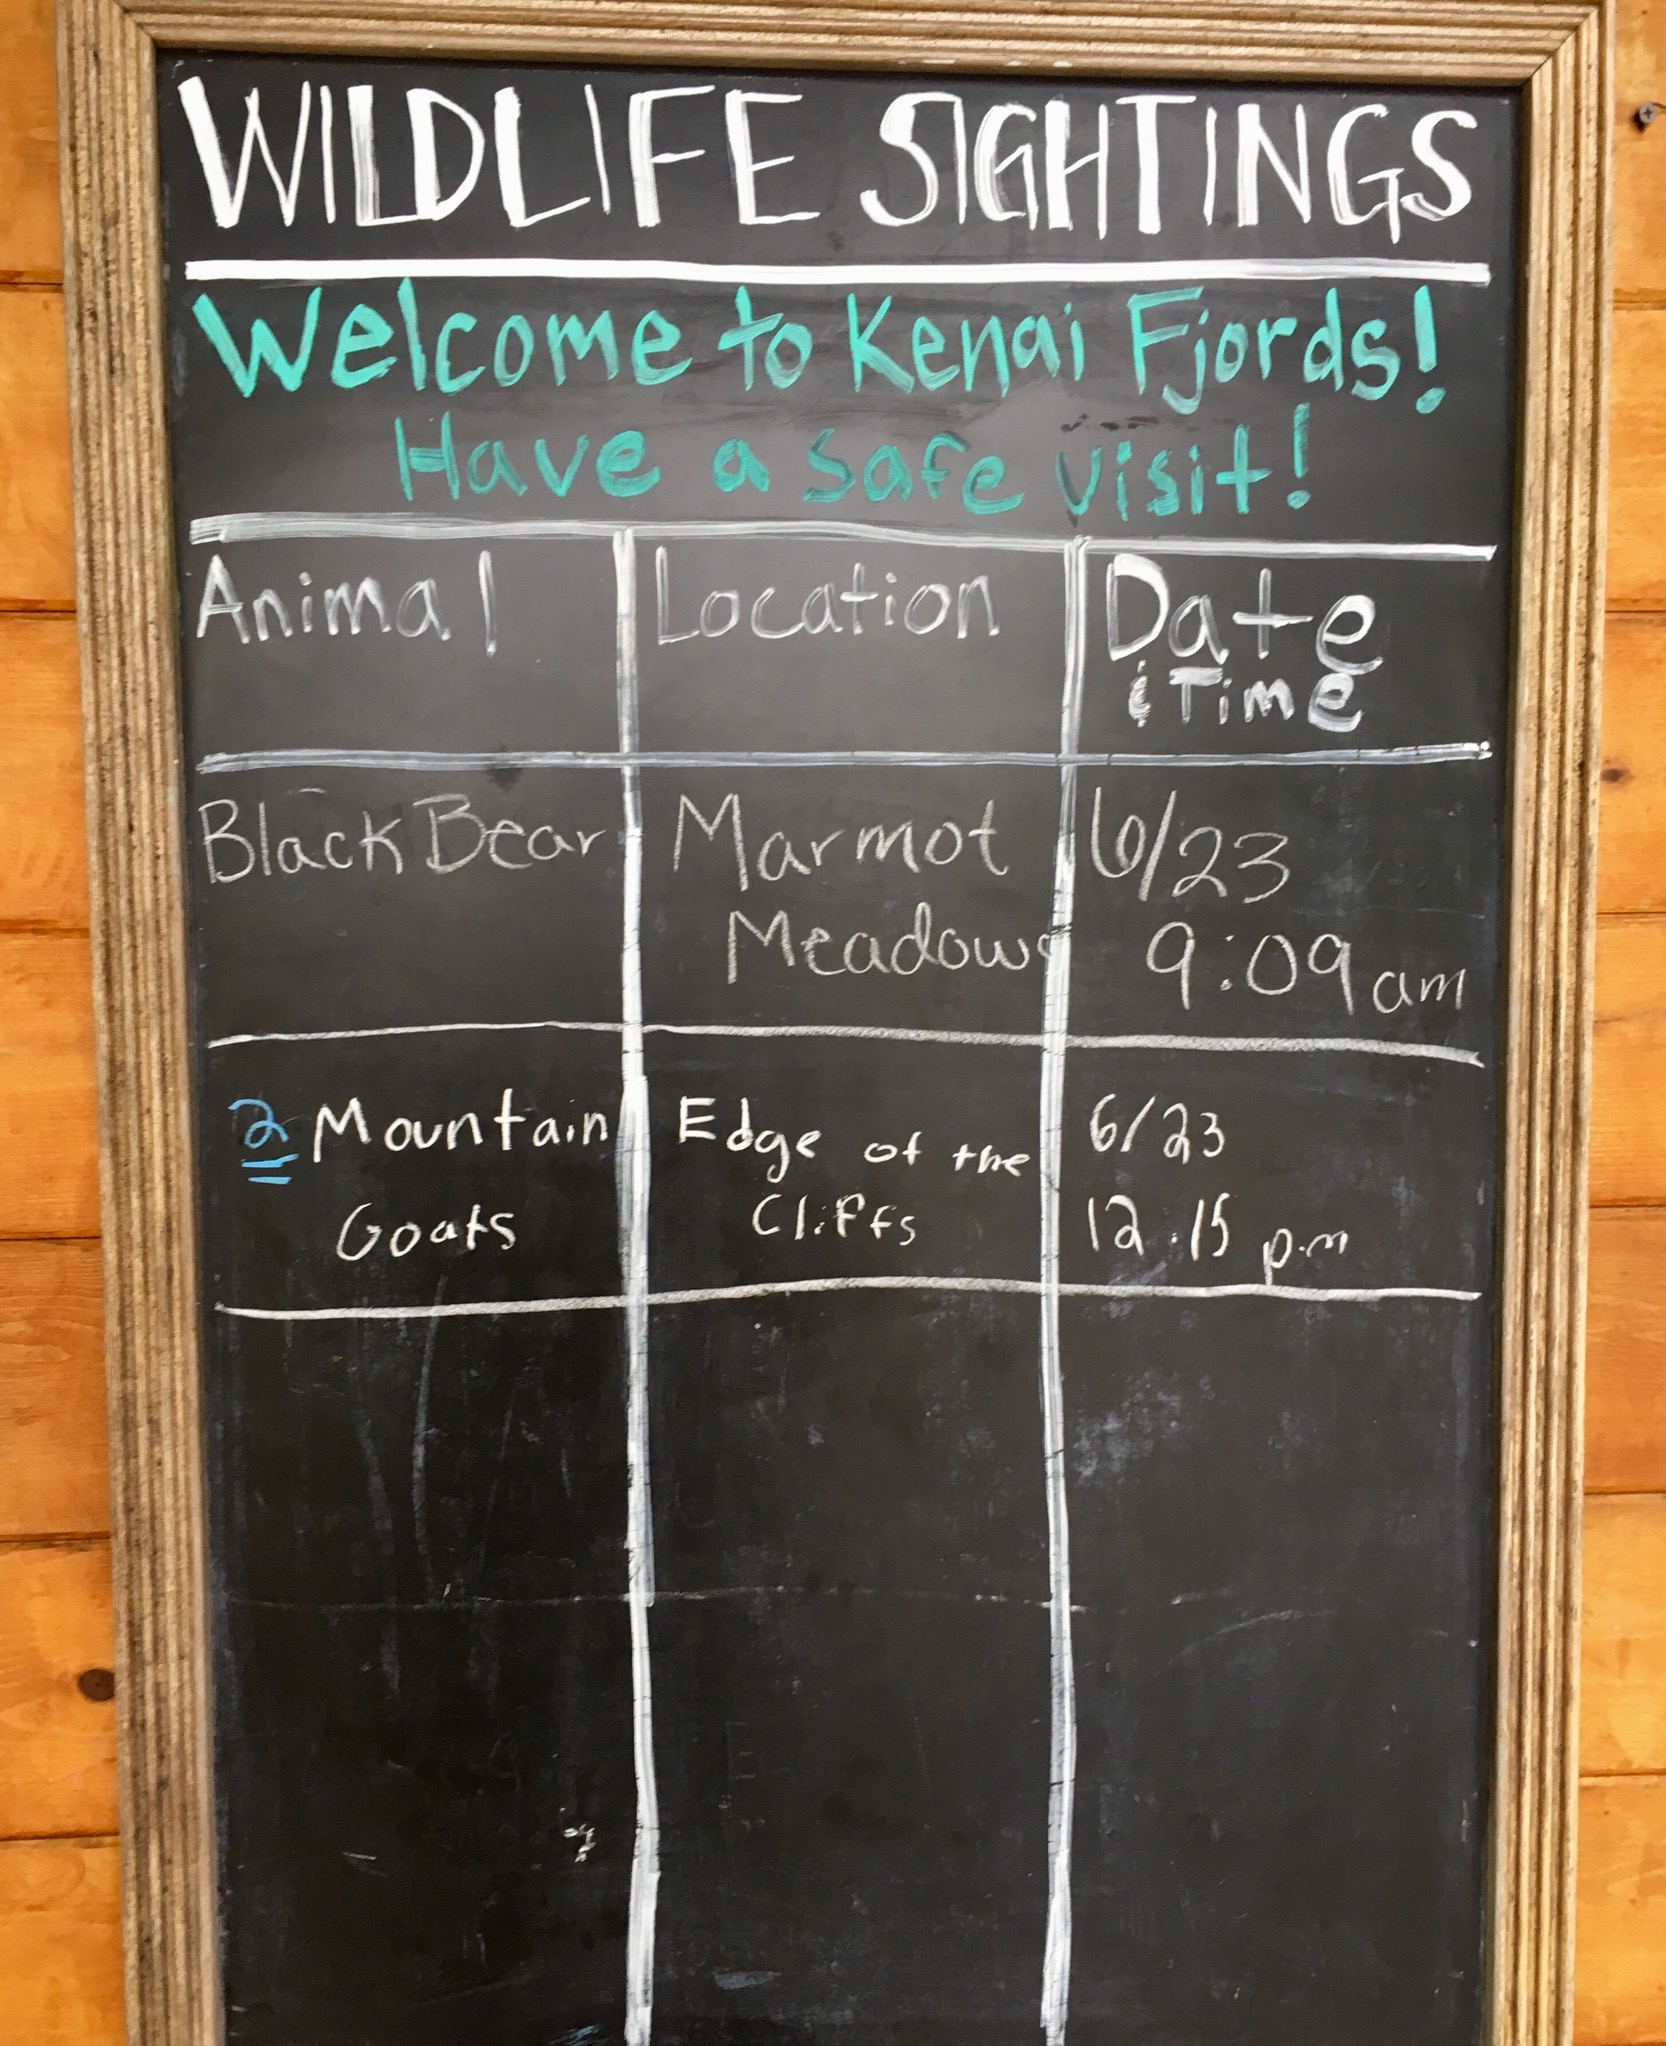 WILDLIFE SIGHTINGS
Welcome to Kenai Fjords!
Have a safe visit!
Animal Location Date
& Time
Black Bear Marmot 6/23
Meadows 9:09 am
2 Mountain Edge of the 6/23
Goats Cliffs 12:15 p.m